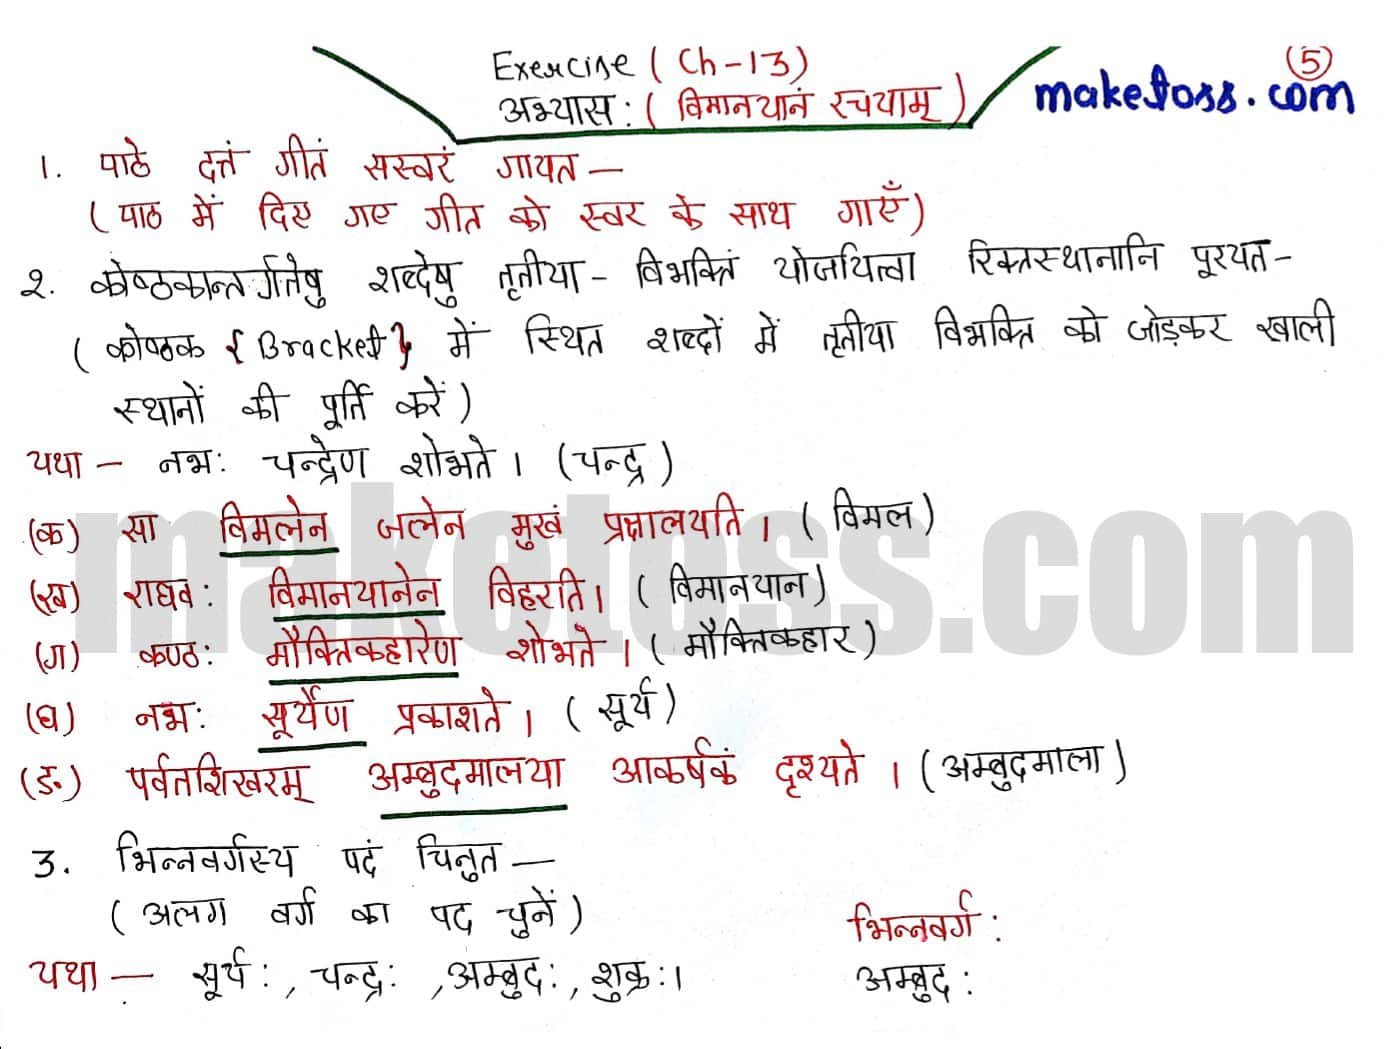 Exercise ( Ch-13)
5
अभ्यास: ( विमानयानं रचयाम् )
maketoss.com
1. पाठे दत्तं गीतं सस्वरं गायत —
( पाठ में दिए गए गीत को स्वर के साथ गाएँ)
२. कोष्ठकान्तर्गतेषु शब्देषु तृतीया - विभक्तिं योजयित्वा रिक्तस्थानानि पूरयत-
( कोष्ठक {Bracket} में स्थित शब्दों में तृतीया विभक्ति को जोड़कर खाली
स्थानों की पूर्ति करें)
यथा - नभ: चन्द्रेण शोभते । (चन्द्र)
(क) सा विमलेन जलेन मुखं प्रक्षालयति । ( विमल)
(ख) राघव: विमानयानेन विहरति। ( विमानयान)
(ग) कण्ठ: मौक्तिकहारेण शोभते । ( मौक्तिकहार)
(घ) नभ: सूर्येण प्रकाशते । ( सूर्य)
(ङ) पर्वतशिखरम् अम्बुदमालया आकर्षकं दृश्यते । (अम्बुदमाला)
3. भिन्नवर्गस्य पदं चिनुत —
( अलग वर्ग का पद चुनें)
भिन्नवर्ग:
यथा — सूर्य:, चन्द्र: , अम्बुद:, शुक्र:। अम्बुद:
maketoss.com